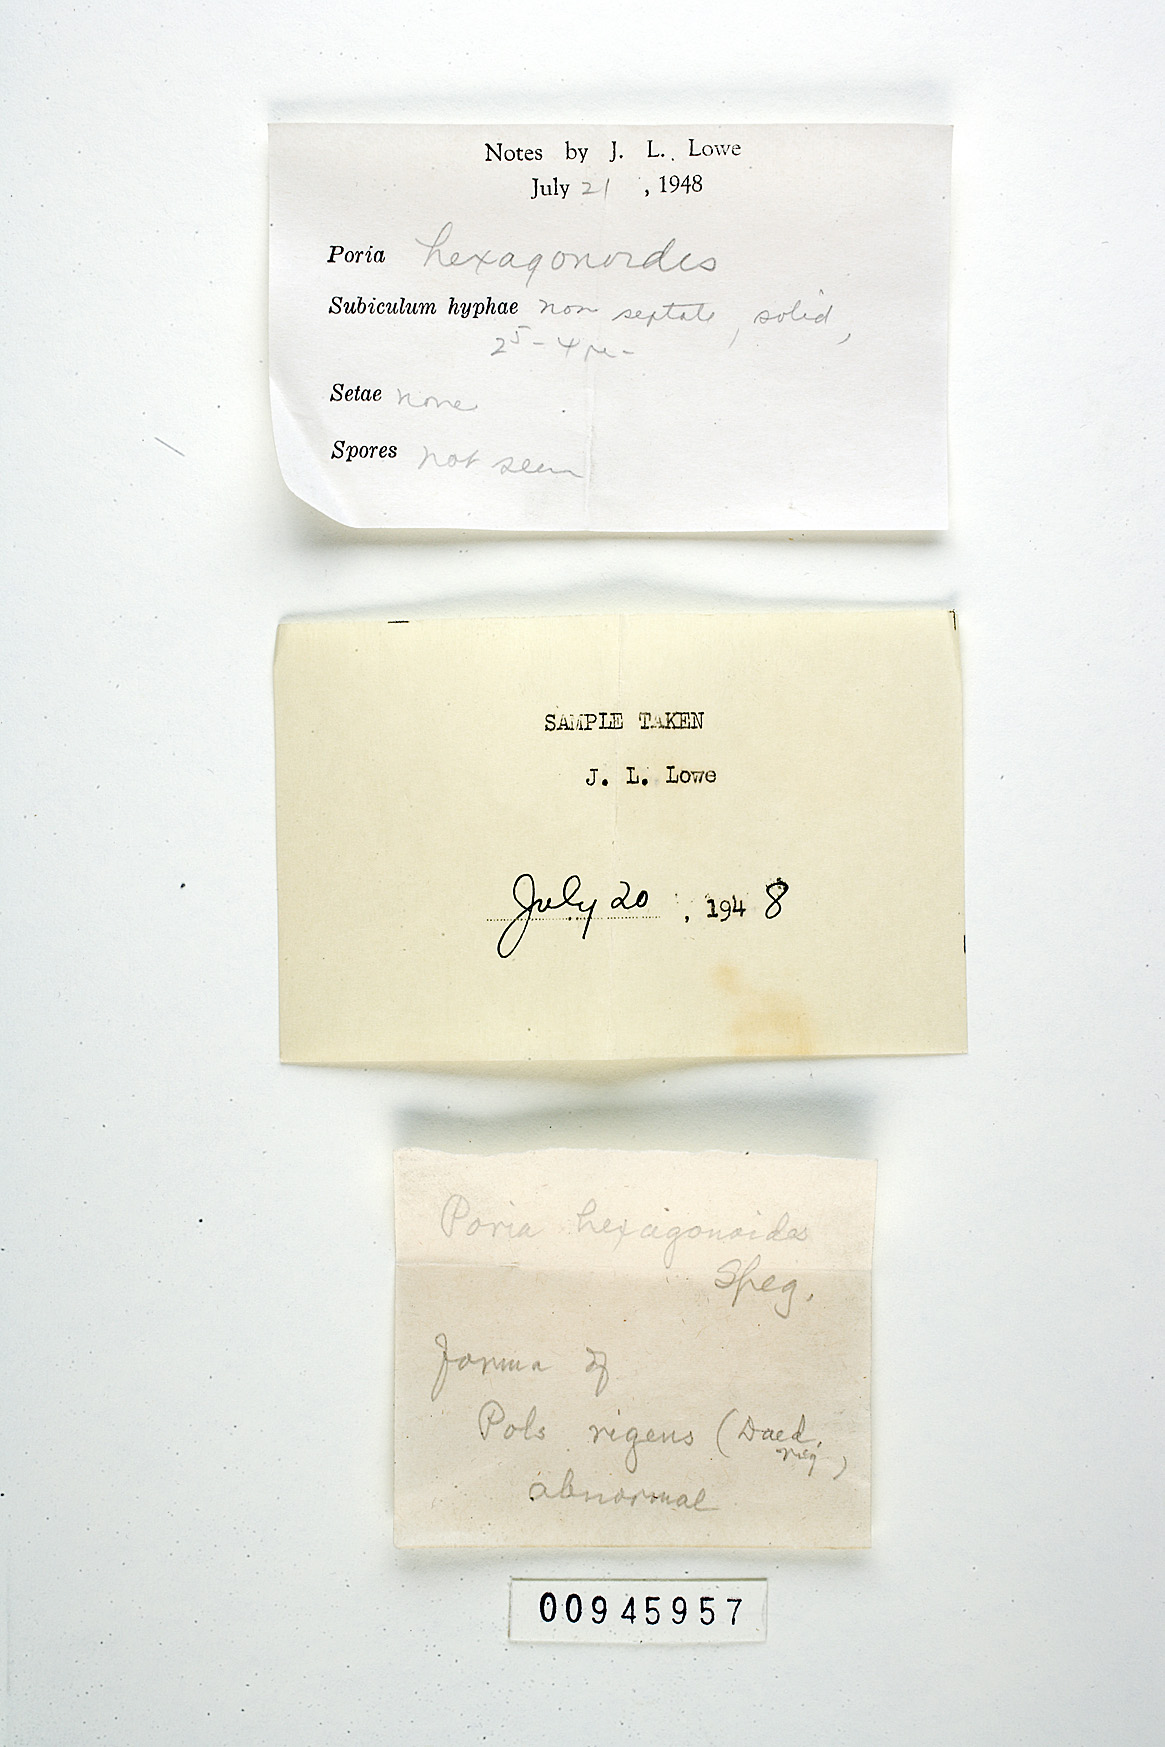 Notes by J. L. Lowe
July 21 , 1948
Poria hexagonoides
Subiculum hyphae non septate, solid,
2⁵-4µ-
Setae none
Spores not seen
SAMPLE TAKEN
J. L. Lowe
July 20 , 1948
Poria hexagonoides
Speg.
forma of
Pols rigens (Daed.
rig )
abnormal
00945957